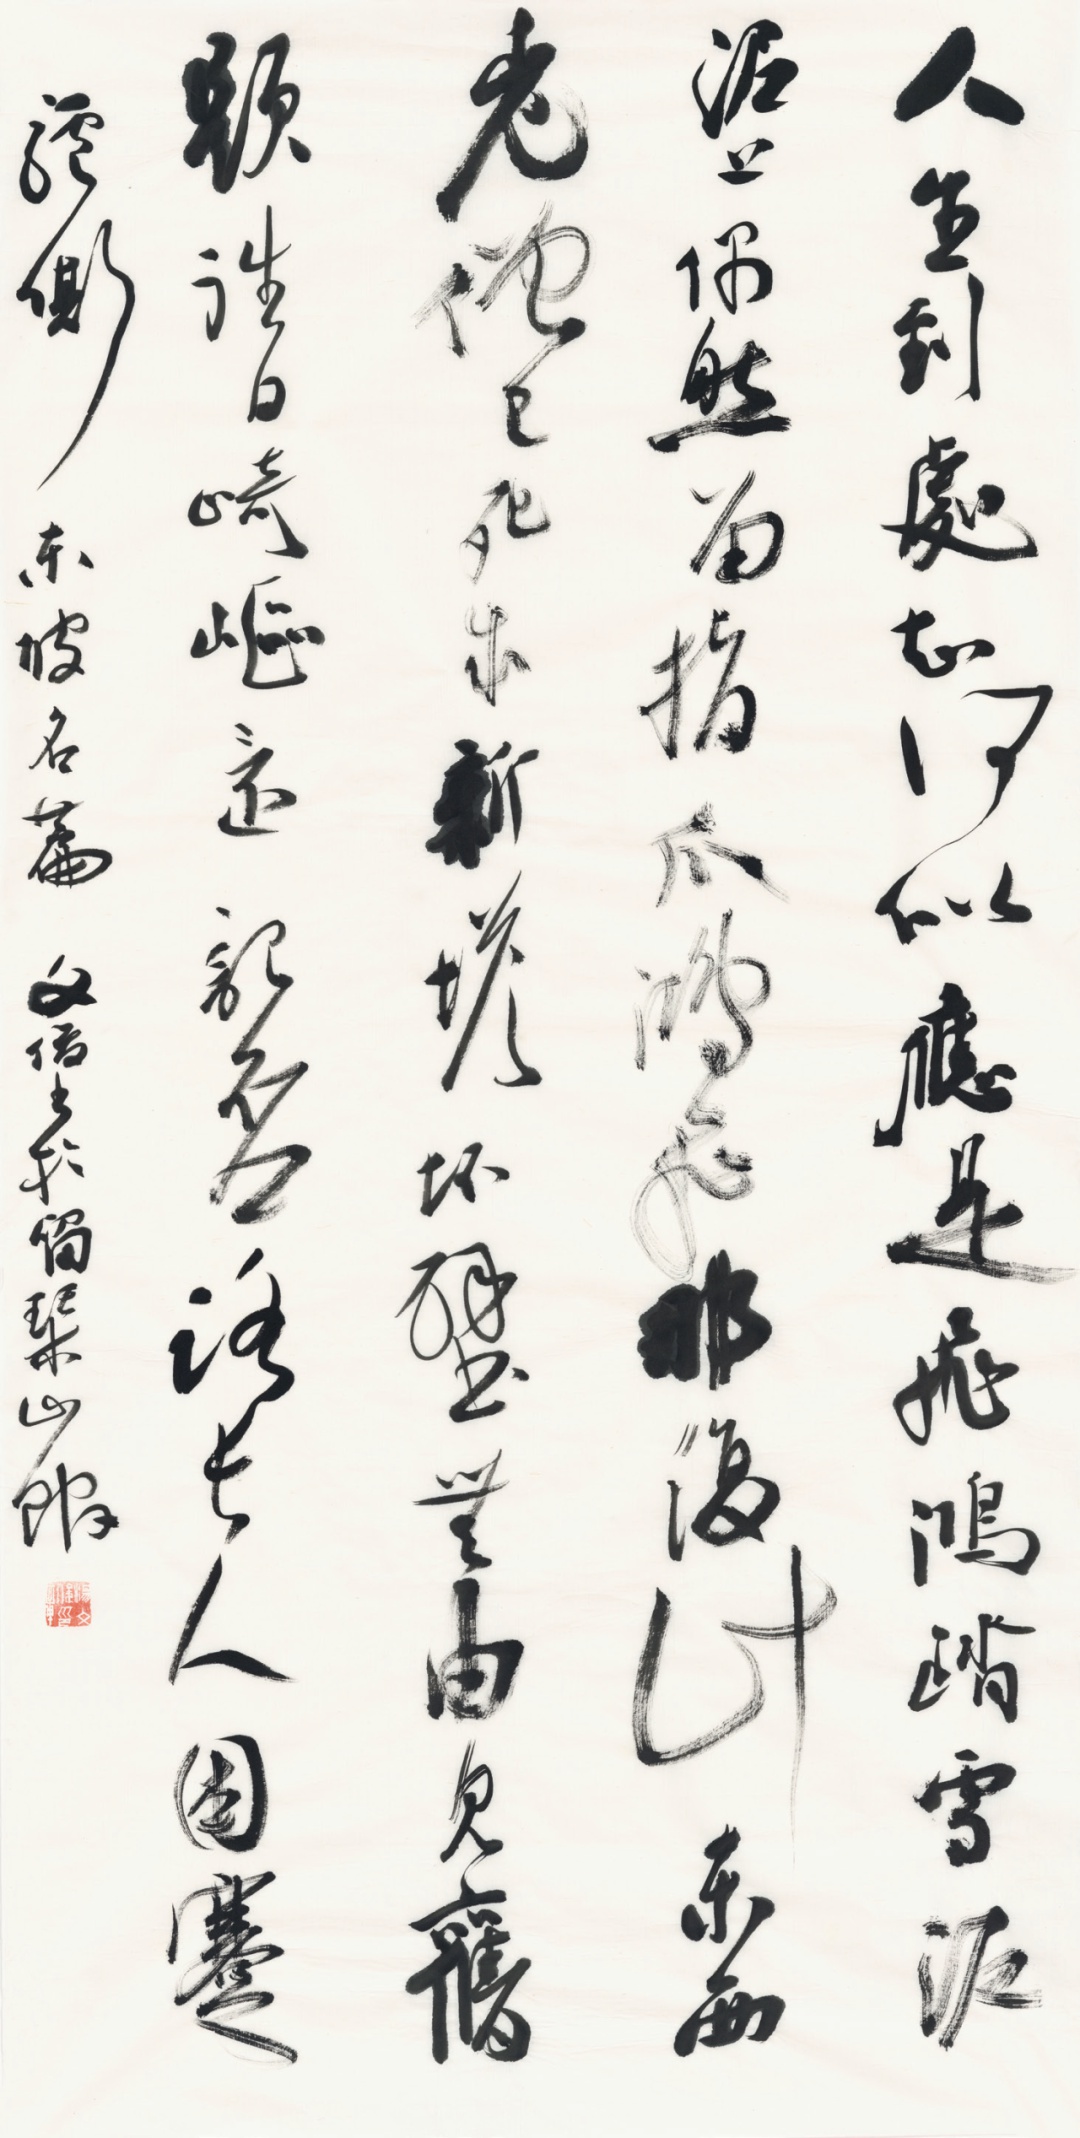 人生到處知何似應是飛鴻踏雪泥
泥上偶然留指爪鴻飛那復計東西
老僧已死成新塔坏壁無由見舊
題往日崎嶇還記否路長人困蹇
驢嘶 東坡名篇 文俊書於獨琹山館